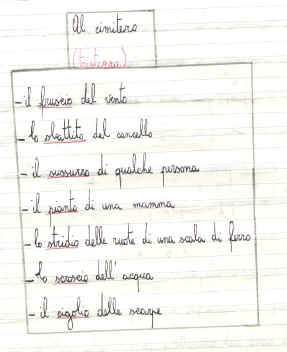 Al cimitero
(esterno)
- il fruscio del vento
- lo sbattito del cancello
- il sussurro di qualche persona
- il pianto di una mamma
- lo stridio delle ruote di una scala di ferro
- lo scroscio dell'acqua
- il cigolio delle scarpe